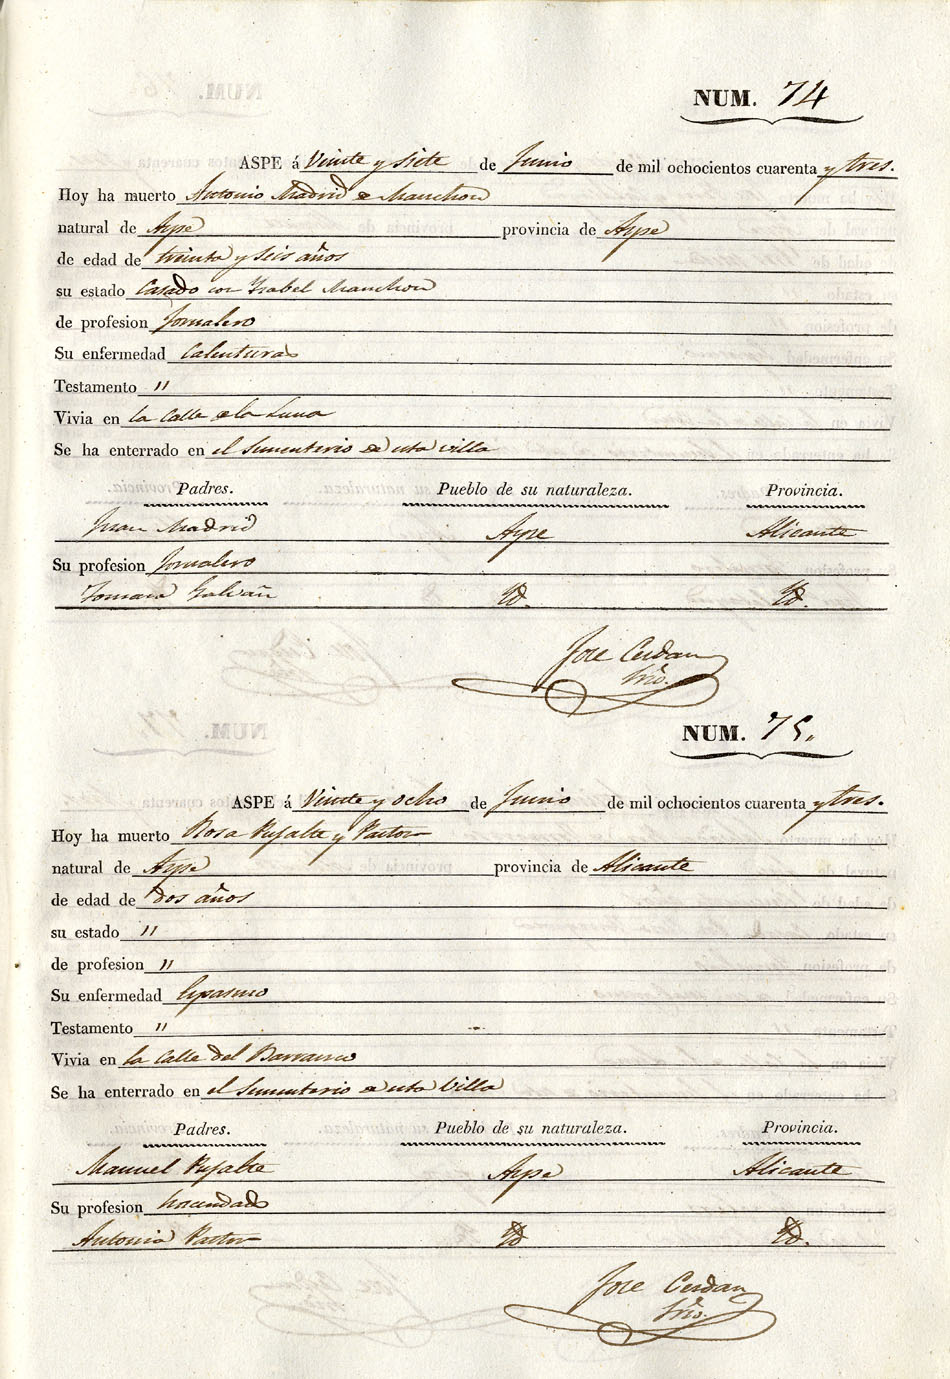 NUM. 74
ASPE á Veinte y siete de Junio de mil ochocientos cuarenta y tres.
Hoy ha muerto Antonio Madrid de Manchon
natural de Aspe provincia de Aspe
de edad de treinta y seis años
su estado Casado con Isabel Manchon
de profesion Jornalero
Su enfermedad Calenturas
Testamento "
Vivia en la Calle de la Luna
Se ha enterrado en el Sementerio de esta villa
Padres. Pueblo de su naturaleza. Provincia.
Juan Madrid Aspe Alicante
Su profesion Jornalero
Tomasa Galvañ Yd. Yd.
Jose Cerdan
Srio.
NUM. 75.
ASPE á Veinte y ocho de Junio de mil ochocientos cuarenta y tres.
Hoy ha muerto Rosa Pujalte y Pastor
natural de Aspe provincia de Alicante
de edad de dos años
su estado "
de profesion "
Su enfermedad Espasmo
Testamento "
Vivia en la Calle del Barranco
Se ha enterrado en el Sementerio de esta Villa
Padres. Pueblo de su naturaleza. Provincia.
Manuel Pujalte Aspe Alicante
Su profesion hacendado
Antonia Pastor Yd Yd.
Jose Cerdan
Srio.